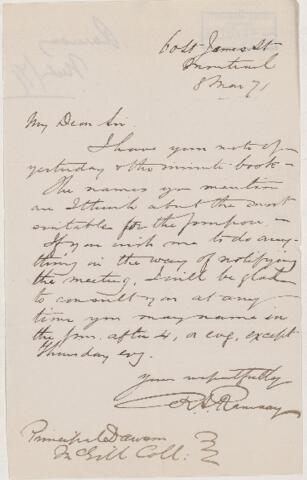 60 St James St
Montreal
8 Mar 71
My Dear Sir.
I have your note of
yesterday & the minute book -
The names you mention
are I think about the most
suitable for the purpose. -
If you wish me to do any-
thing in the way of notifying
the meeting, I will be glad
to consult you at any
time you may name in
the after 4, or evg, except
Thursday evg.
Yours respectfully
R. A. Ramsay
Principal Dawson
McGill Coll: